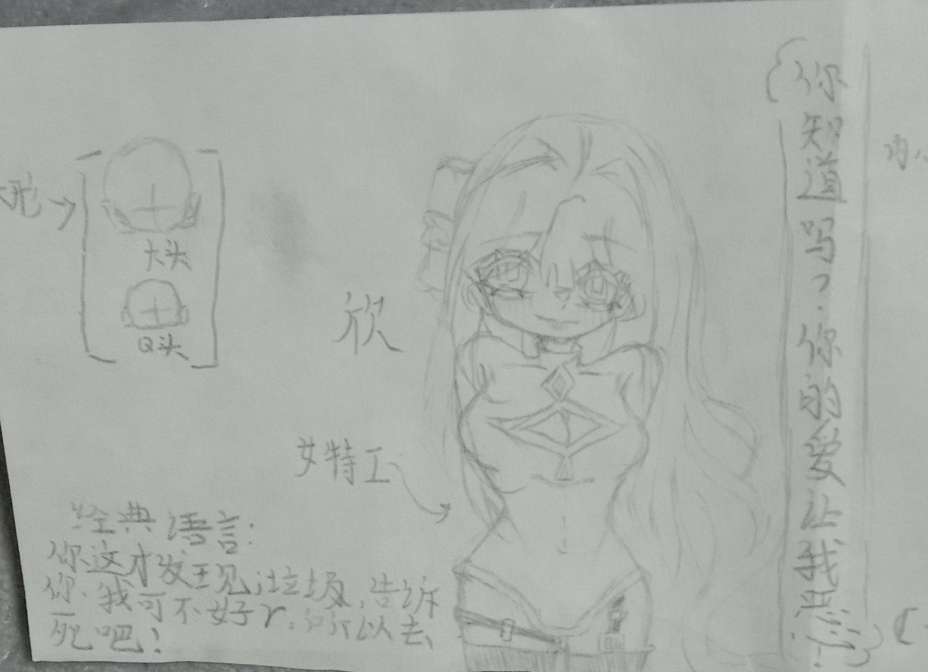 你知道吗?你的爱让我恶心
大头
Q头
欣
女特工
经典语言:
你这才发现,垃圾,告诉
你,我可不好 所以去
死吧!